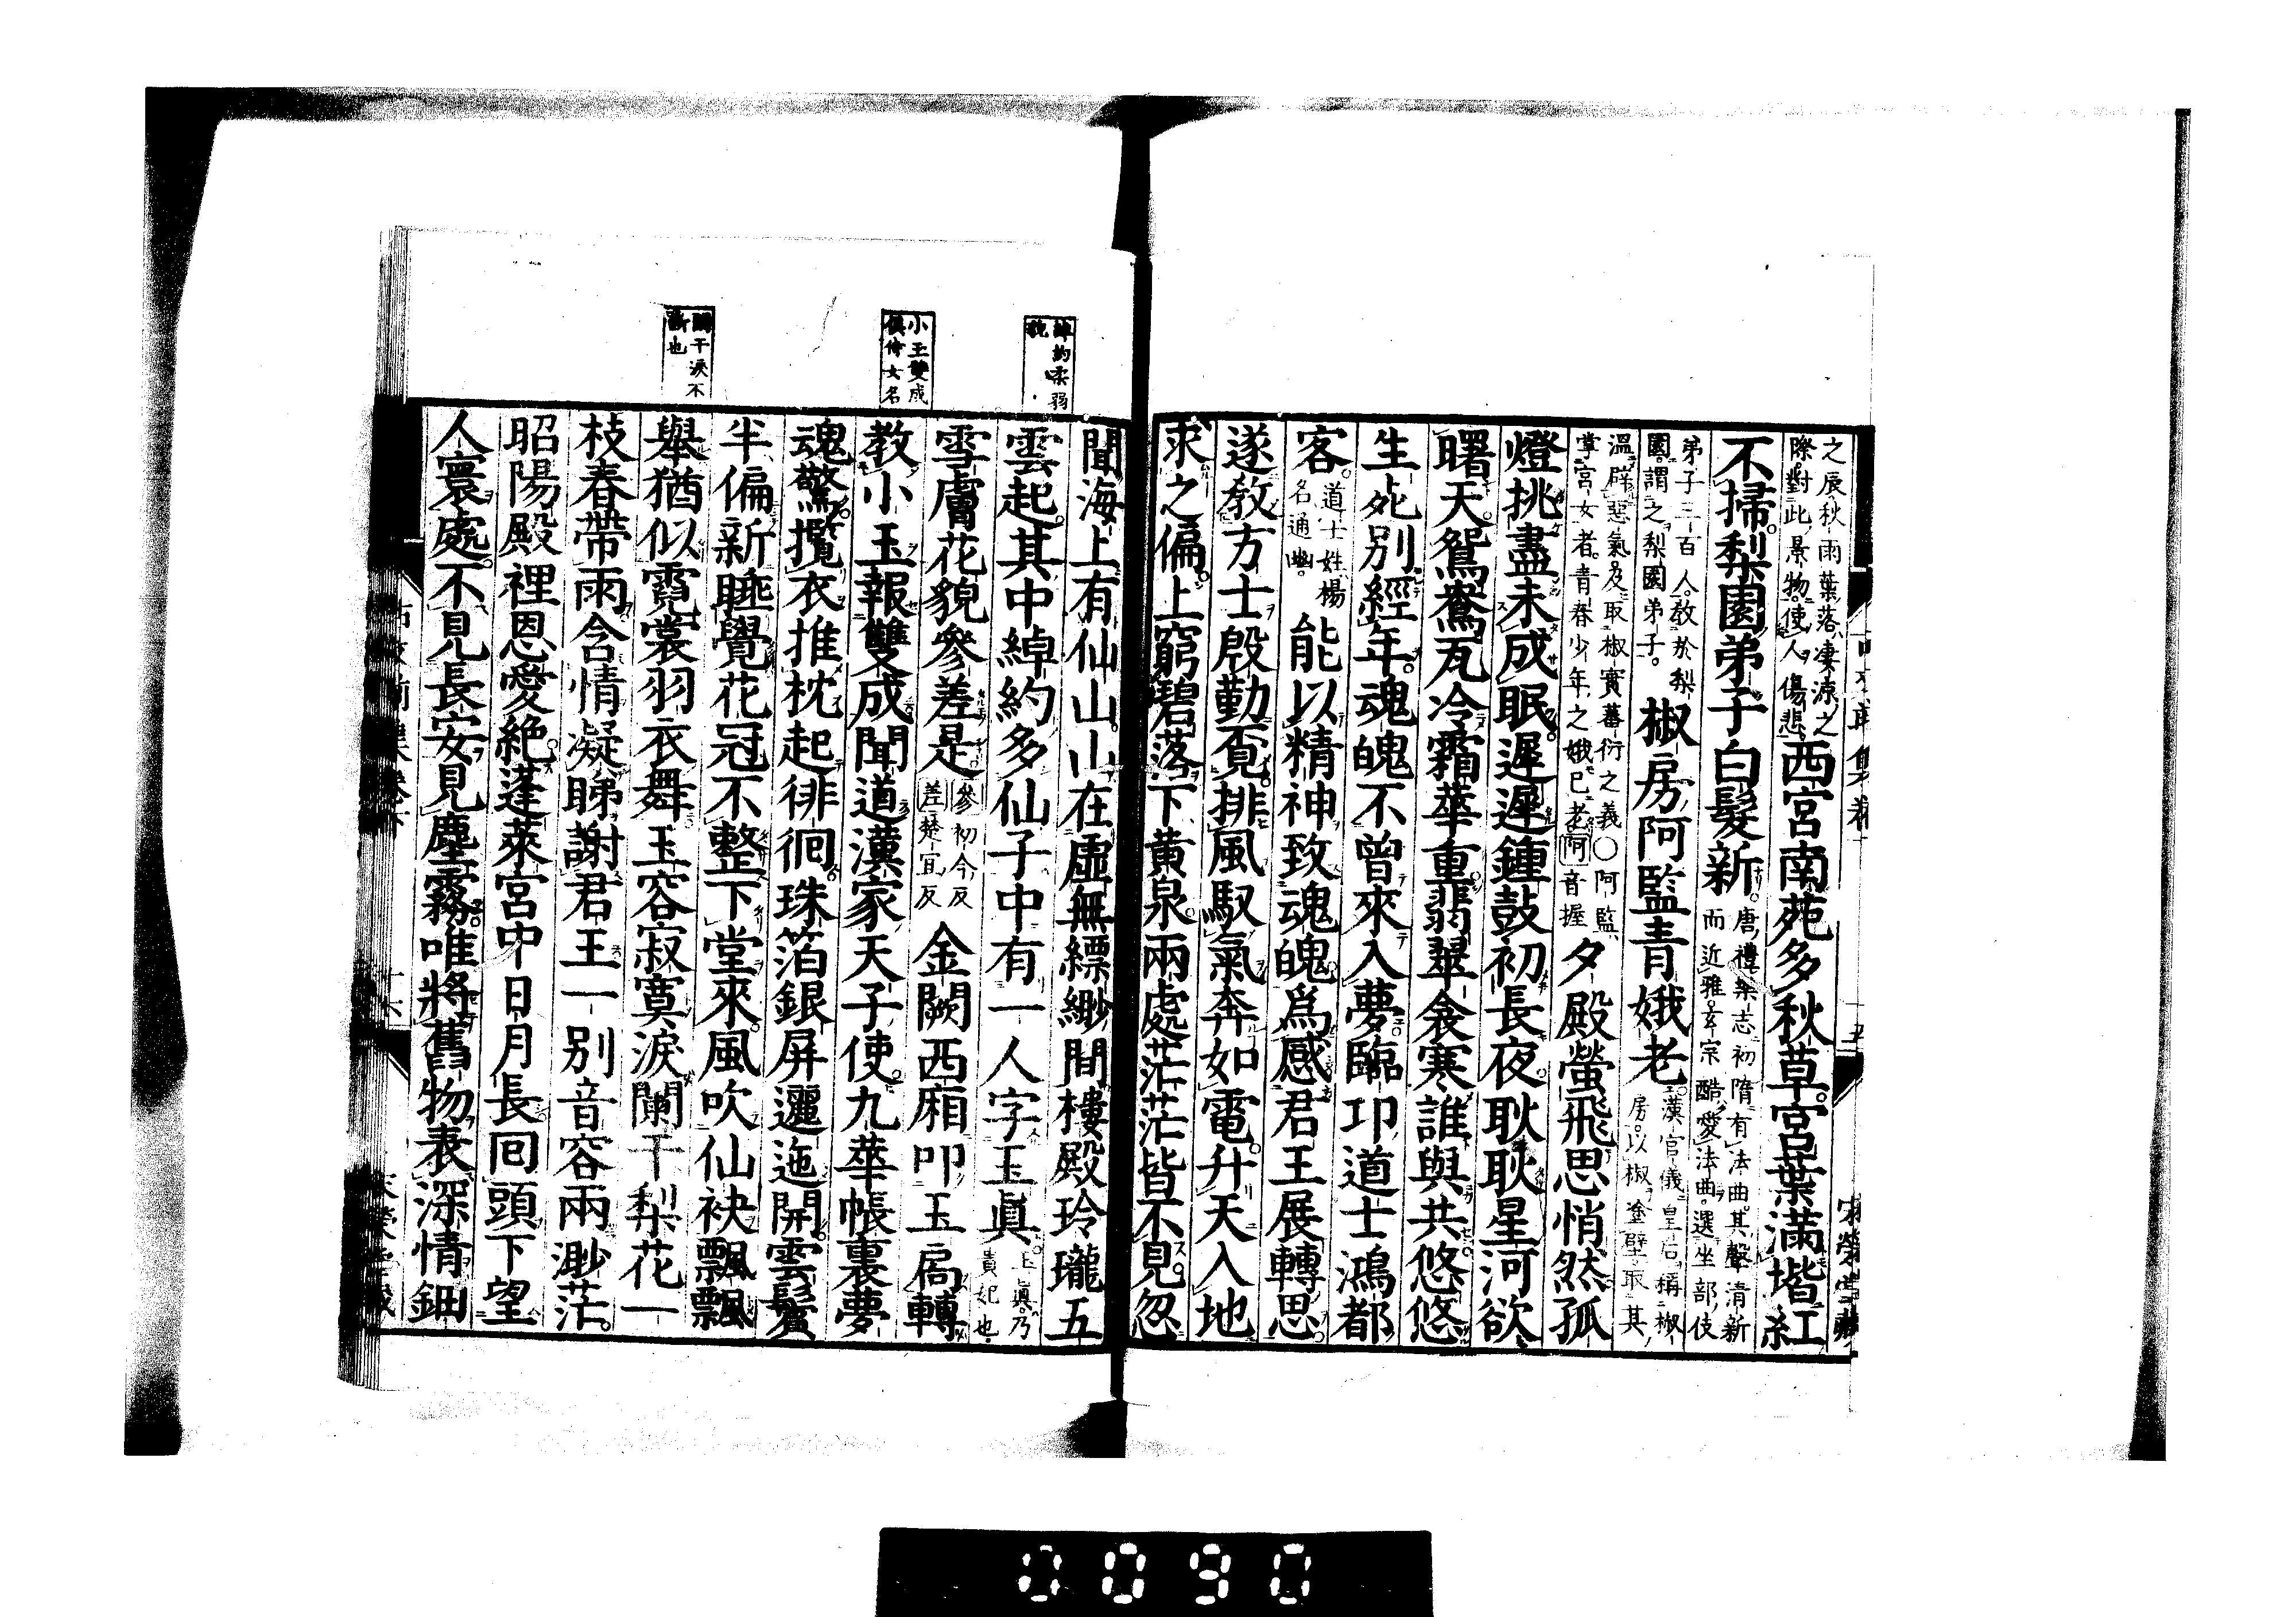 之辰秋雨葉落凄凉之
際對此景物使人傷悲 西宮南苑多秋草宮葉滿堦紅
不掃梨園弟子白髮新 唐禮樂志初隋有法曲其聲清新
而近雅玄宗酷愛法曲選坐部伎
弟子三百人敎於梨
園謂之梨園弟子 椒房阿監青娥老 漢官儀皇后稱椒
房以椒塗壁取其
溫辟惡氣及取椒實蕃衍之義○阿監
掌宮女者青春少年之娥已老阿音握 夕殿螢飛思悄然孤
燈挑盡未成眠遲遲鍾鼓初長夜耿耿星河欲
曙天鴛鴦瓦冷霜華重翡翠衾寒誰與共悠悠
生死別經年魂魄不曾來入夢臨卭道士鴻都
客 道士姓楊
名通幽 能以精神致魂魄爲感君王展轉思
遂敎方士殷勤覓排風馭氣奔如電升天入地
求之偏上窮碧落下黃泉兩處茫茫皆不見忽
聞海上有仙山山在虛無縹緲間樓殿玲瓏五
雲起其中綽約多仙子中有一人字玉眞 上眞乃
貴妃也
雪膚花貌參差是 參初今反
差楚宜反 金闕西廂叩玉扃轉
教小玉報雙成聞道漢家天子使九華帳裏夢
魂驚攬衣推枕起徘徊珠箔銀屏邐迤開雲鬢
半偏新睡覺花冠不整下堂來風吹仙袂飄飄
舉猶似霓裳羽衣舞玉容寂寞淚闌干梨花一
枝春帶雨含情凝睇謝君王一別音容兩渺茫
昭陽殿裡恩愛絶蓬萊宮中日月長回頭下望
人寰處不見長安見塵霧唯將舊物表深情鈿
綽約柔弱
貌
小玉雙成
俱侍女名
闌干淚不
斷也
0090